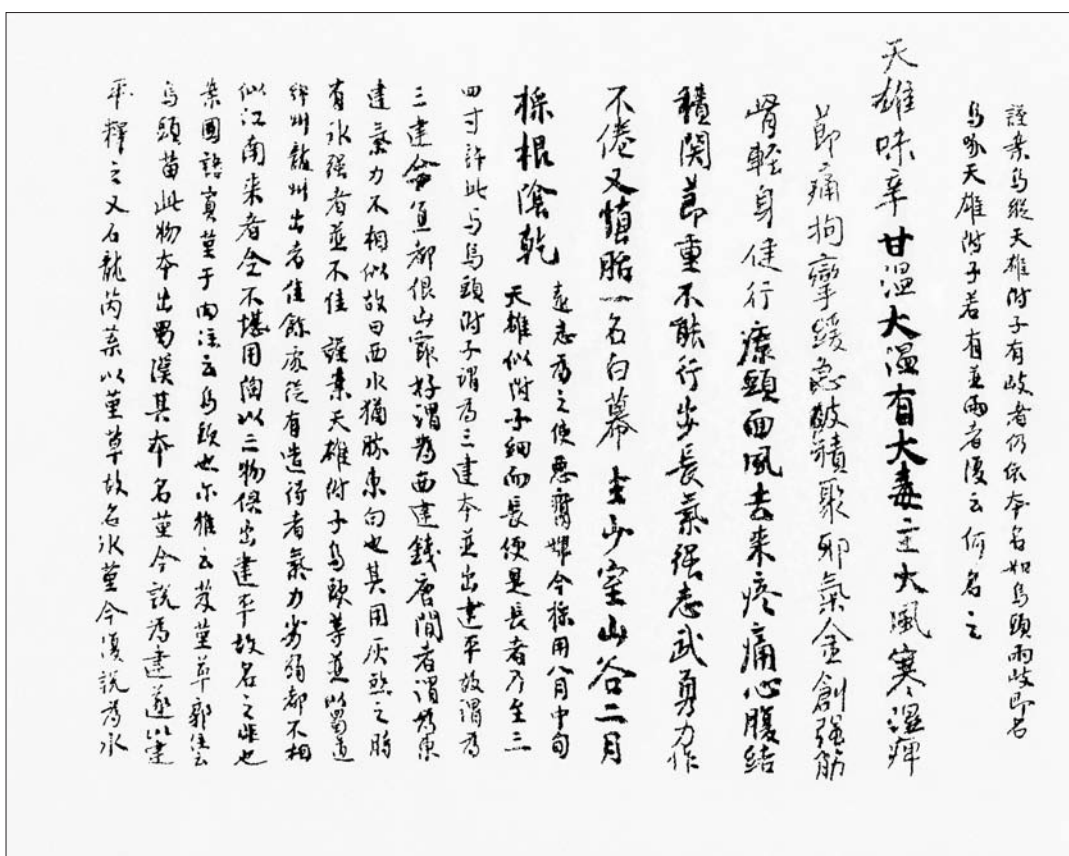 謹案烏緃天雄附子有歧者仍依本名如烏頭兩歧即名
烏喙天雄附子若有並兩者復云何名之
天雄味辛甘温大温有大毒主大風寒濕痺
節痛拘攣緩急破積聚邪氣金創強筋
骨輕身健行療頭面風去来疼痛心腹結
積関節重不能行步長氣强志武勇力作
不倦又墮胎一名白幕生少室山谷二月
採根陰乾
遠志為之使惡腐婢今採用八月中旬
天雄似附子細而長便是長者乃至三
四寸許此与烏頭附子謂為三建本並出建平故謂為
三建今宜都佷山最好謂為西建錢唐間者謂為東
建氣力不相似故曰西水猶勝東白也其用灰煞之時
有氷强者並不佳 謹案天雄附子烏頭等並以蜀道
綿州龍州出者佳餘處縱有造得者氣力劣弱都不相
似江南来者全不堪用陶以三物俱出建平故名之非也
案國語寘堇于肉注云烏頭也尓雅云芨堇草郭住云
烏頭苗此物本出蜀漢其本名堇今說為建遂以建
平釋之又石龍芮葉以堇草故名水堇今復說為水